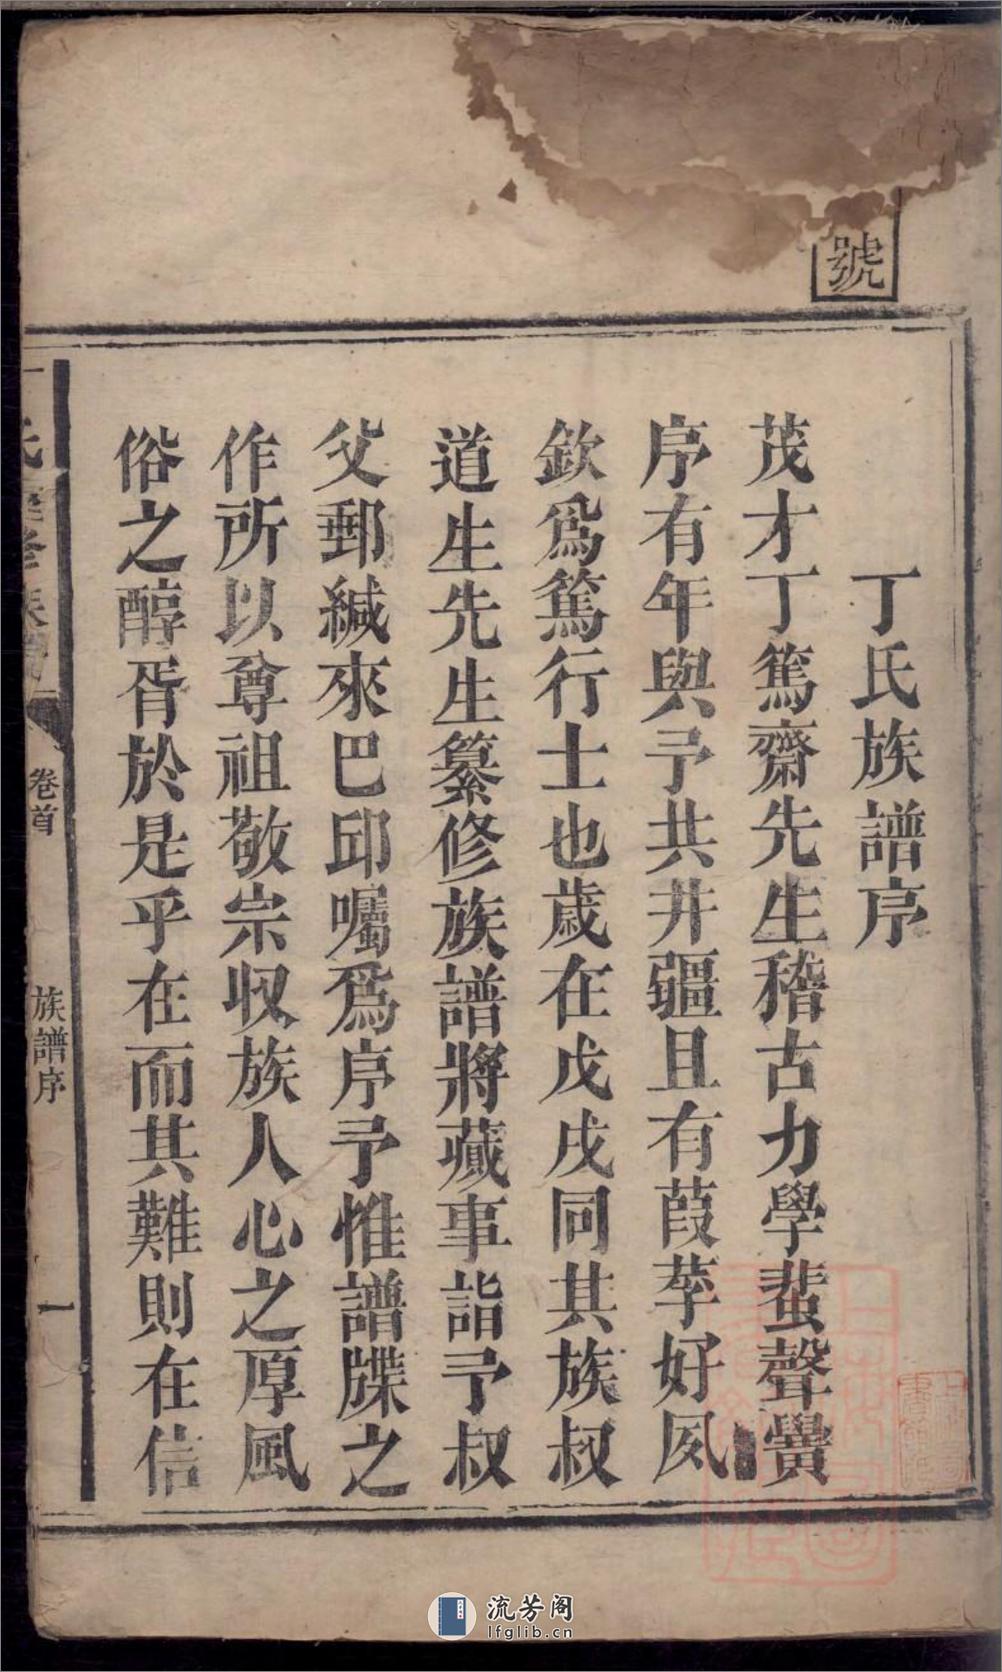 號
丁氏族譜序
茂才丁篤齋先生稽古力學蜚聲黌
序有年與予共井疆且有葭莩好夙
欽爲篤行士也歲在戊戌同其族叔
道生先生纂修族譜將蕆事詣予叔
父郵緘來巴邱囑爲序予惟譜牒之
作所以尊祖敬宗収族人心之厚風
俗之醇胥於是乎在而其難則在信
卷首
族譜序
一
流芳阁
lfglib.cn